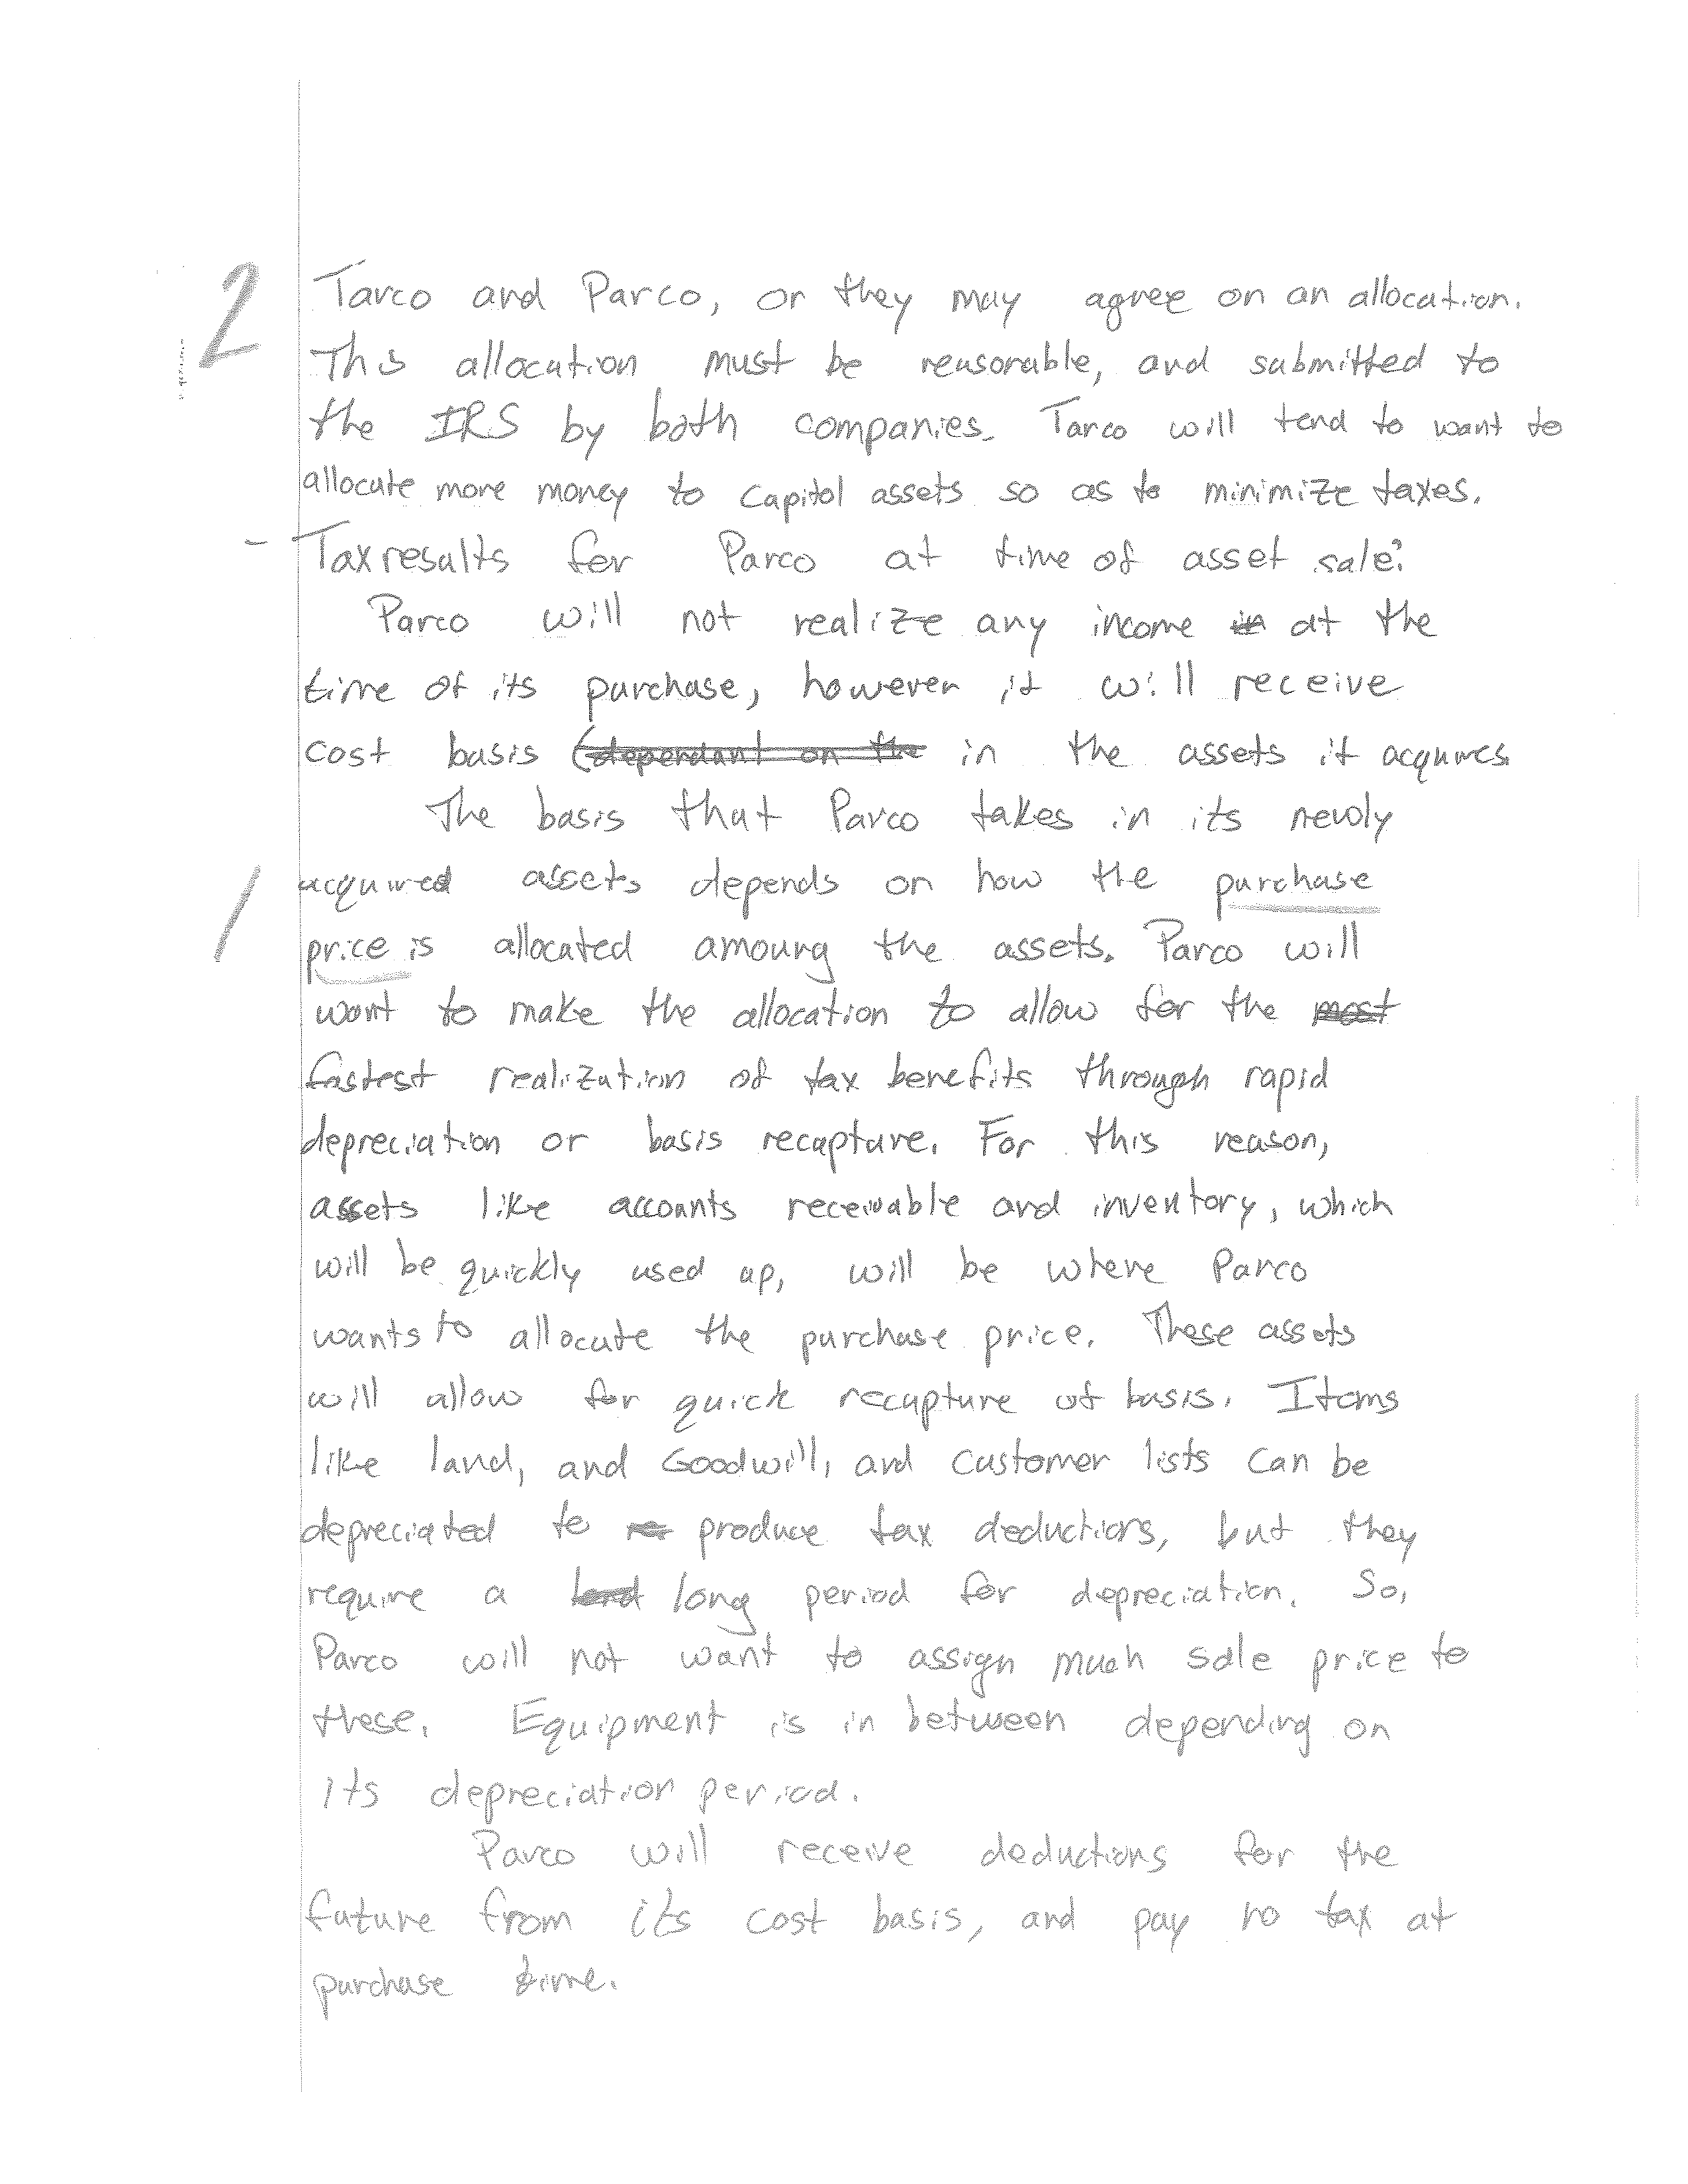 2 Tarco and Parco, or they may agree on an allocation.
This allocation must be reasonable, and submitted to
the IRS by both companies. Tarco will tend to want to
allocate more money to capitol assets so as to minimize taxes.
- Tax results for Parco at time of asset sale:
Parco will not realize any income in at the
time of its purchase, however it will receive
cost basis (dependant on the in the assets it acquires.
The basis that Parco takes in its newly
/ acquired assets depends on how the purchase
price is allocated amoung the assets. Parco will
want to make the allocation to allow for the most
fastest realization of tax benefits through rapid
depreciation or basis recapture. For this reason,
assets like accounts receivable and inventory, which
will be quickly used up, will be where Parco
wants to allocate the purchase price. These assets
will allow for quick recapture of basis. Items
like land, and Goodwill, and customer lists can be
depreciated to produce tax deductions, but they
require a long period for depreciation. So,
Parco will not want to assign much sale price to
these. Equipment is in between depending on
its depreciation period.
Parco will receive deductions for the
future from its cost basis, and pay no tax at
purchase time.